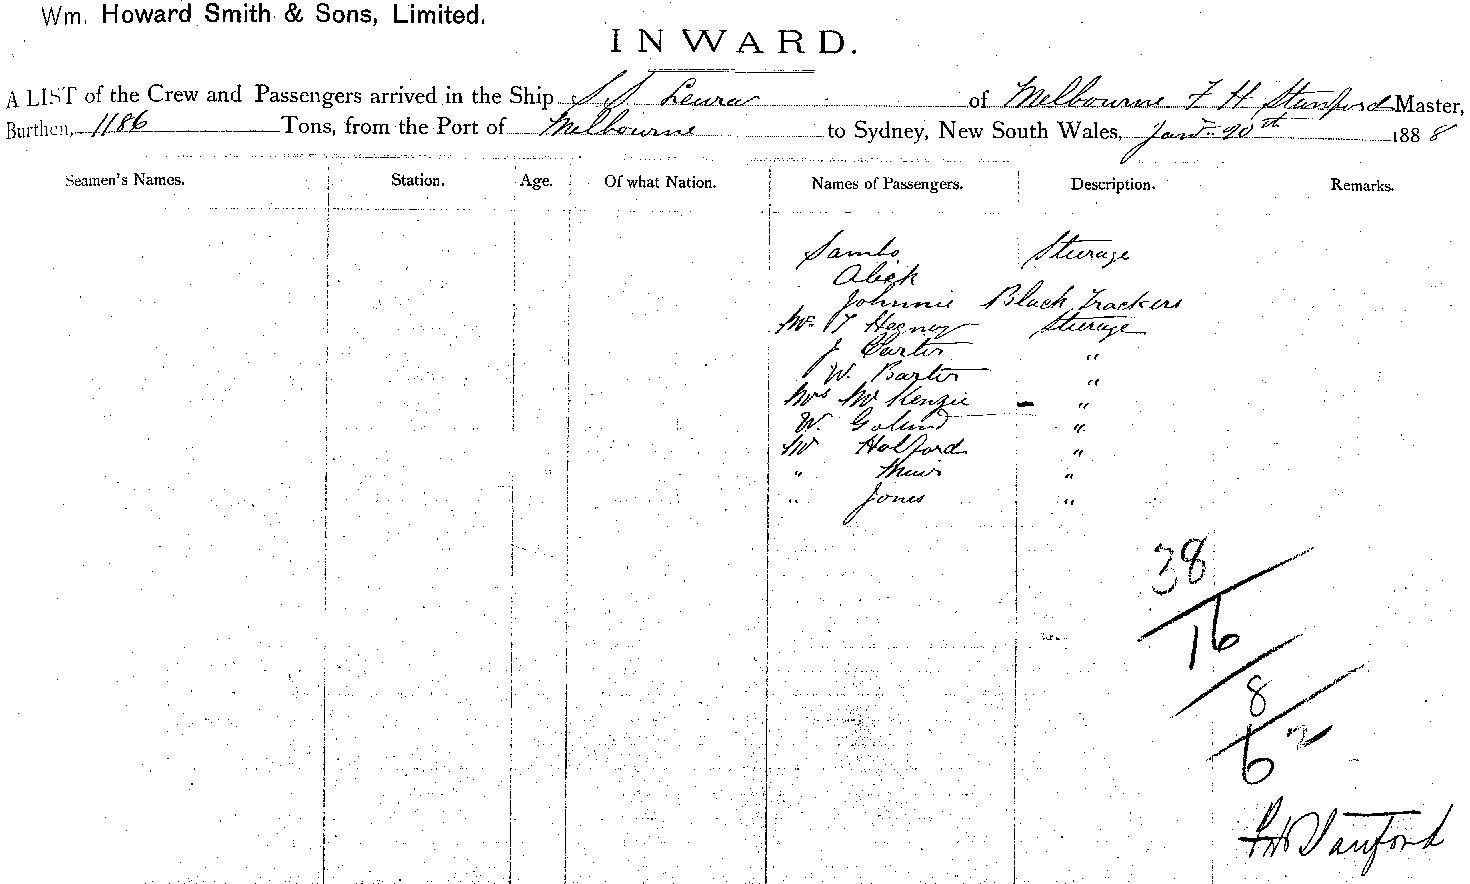 Wm. Howard Smith & Sons, Limited.
INWARD.
A LIST of the Crew and Passengers arrived in the Ship S S Leura of Melbourne F H Stanford Master,
Burthen, 1186 Tons, from the Port of Melbourne to Sydney, New South Wales, Jany 20th 1888
Seamen's Names. Station. Age. Of what Nation. Names of Passengers. Description. Remarks.
Sambo Steerage
Alick
Johnnie Black Trackers
Mr T Steerage
J Carter "
W. Barter "
Mrs McKenzie - "
W. "
Mr Holford "
" Muir "
" Jones "
38
16
8
6 2
F H Stanford